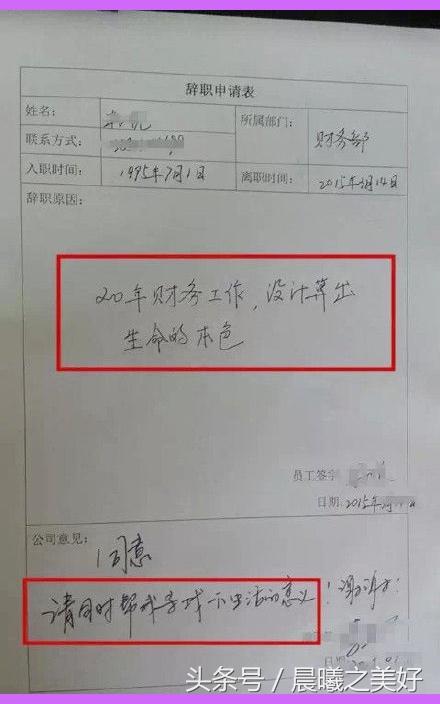 辞职申请表
姓名：
所属部门：
财务部
联系方式：
入职时间：
1995年7月1日
离职时间：
2015年3月14日
辞职原因：
20年财务工作，没计算出
生命的本色
员工签字
日期：2015年
公司意见：
同意
请同时帮我寻找一下生活的意义！谢谢！
日期
头条号／晨曦之美好